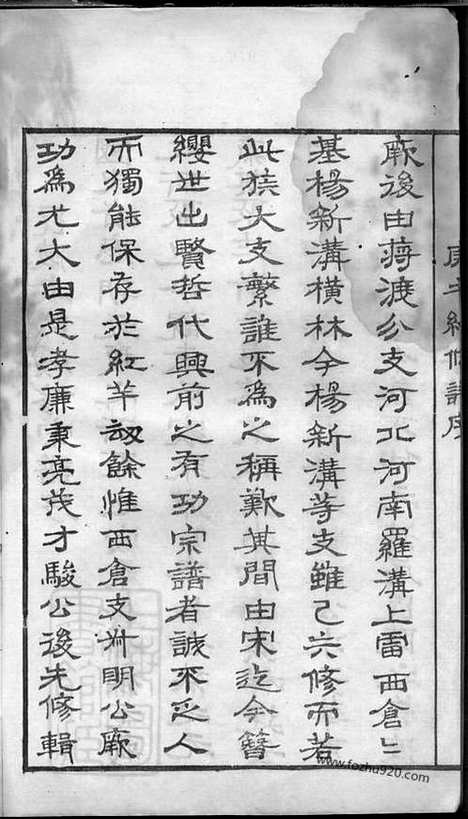 庚午續修譜序
厥後由蔣渡分支河北河南羅溝上雷西倉上
基楊新溝橫林今楊新溝等支雖已六修而若
此族大支繁誰不為之稱歎其間由宋迄今簪
纓世出賢哲代興前之有功宗譜者誠不乏人
而獨能保存於紅羊劫餘惟西倉支卅明公厥
功為尤大由是孝廉秉亮茂才駿公後先修輯
www.fozhu920.com